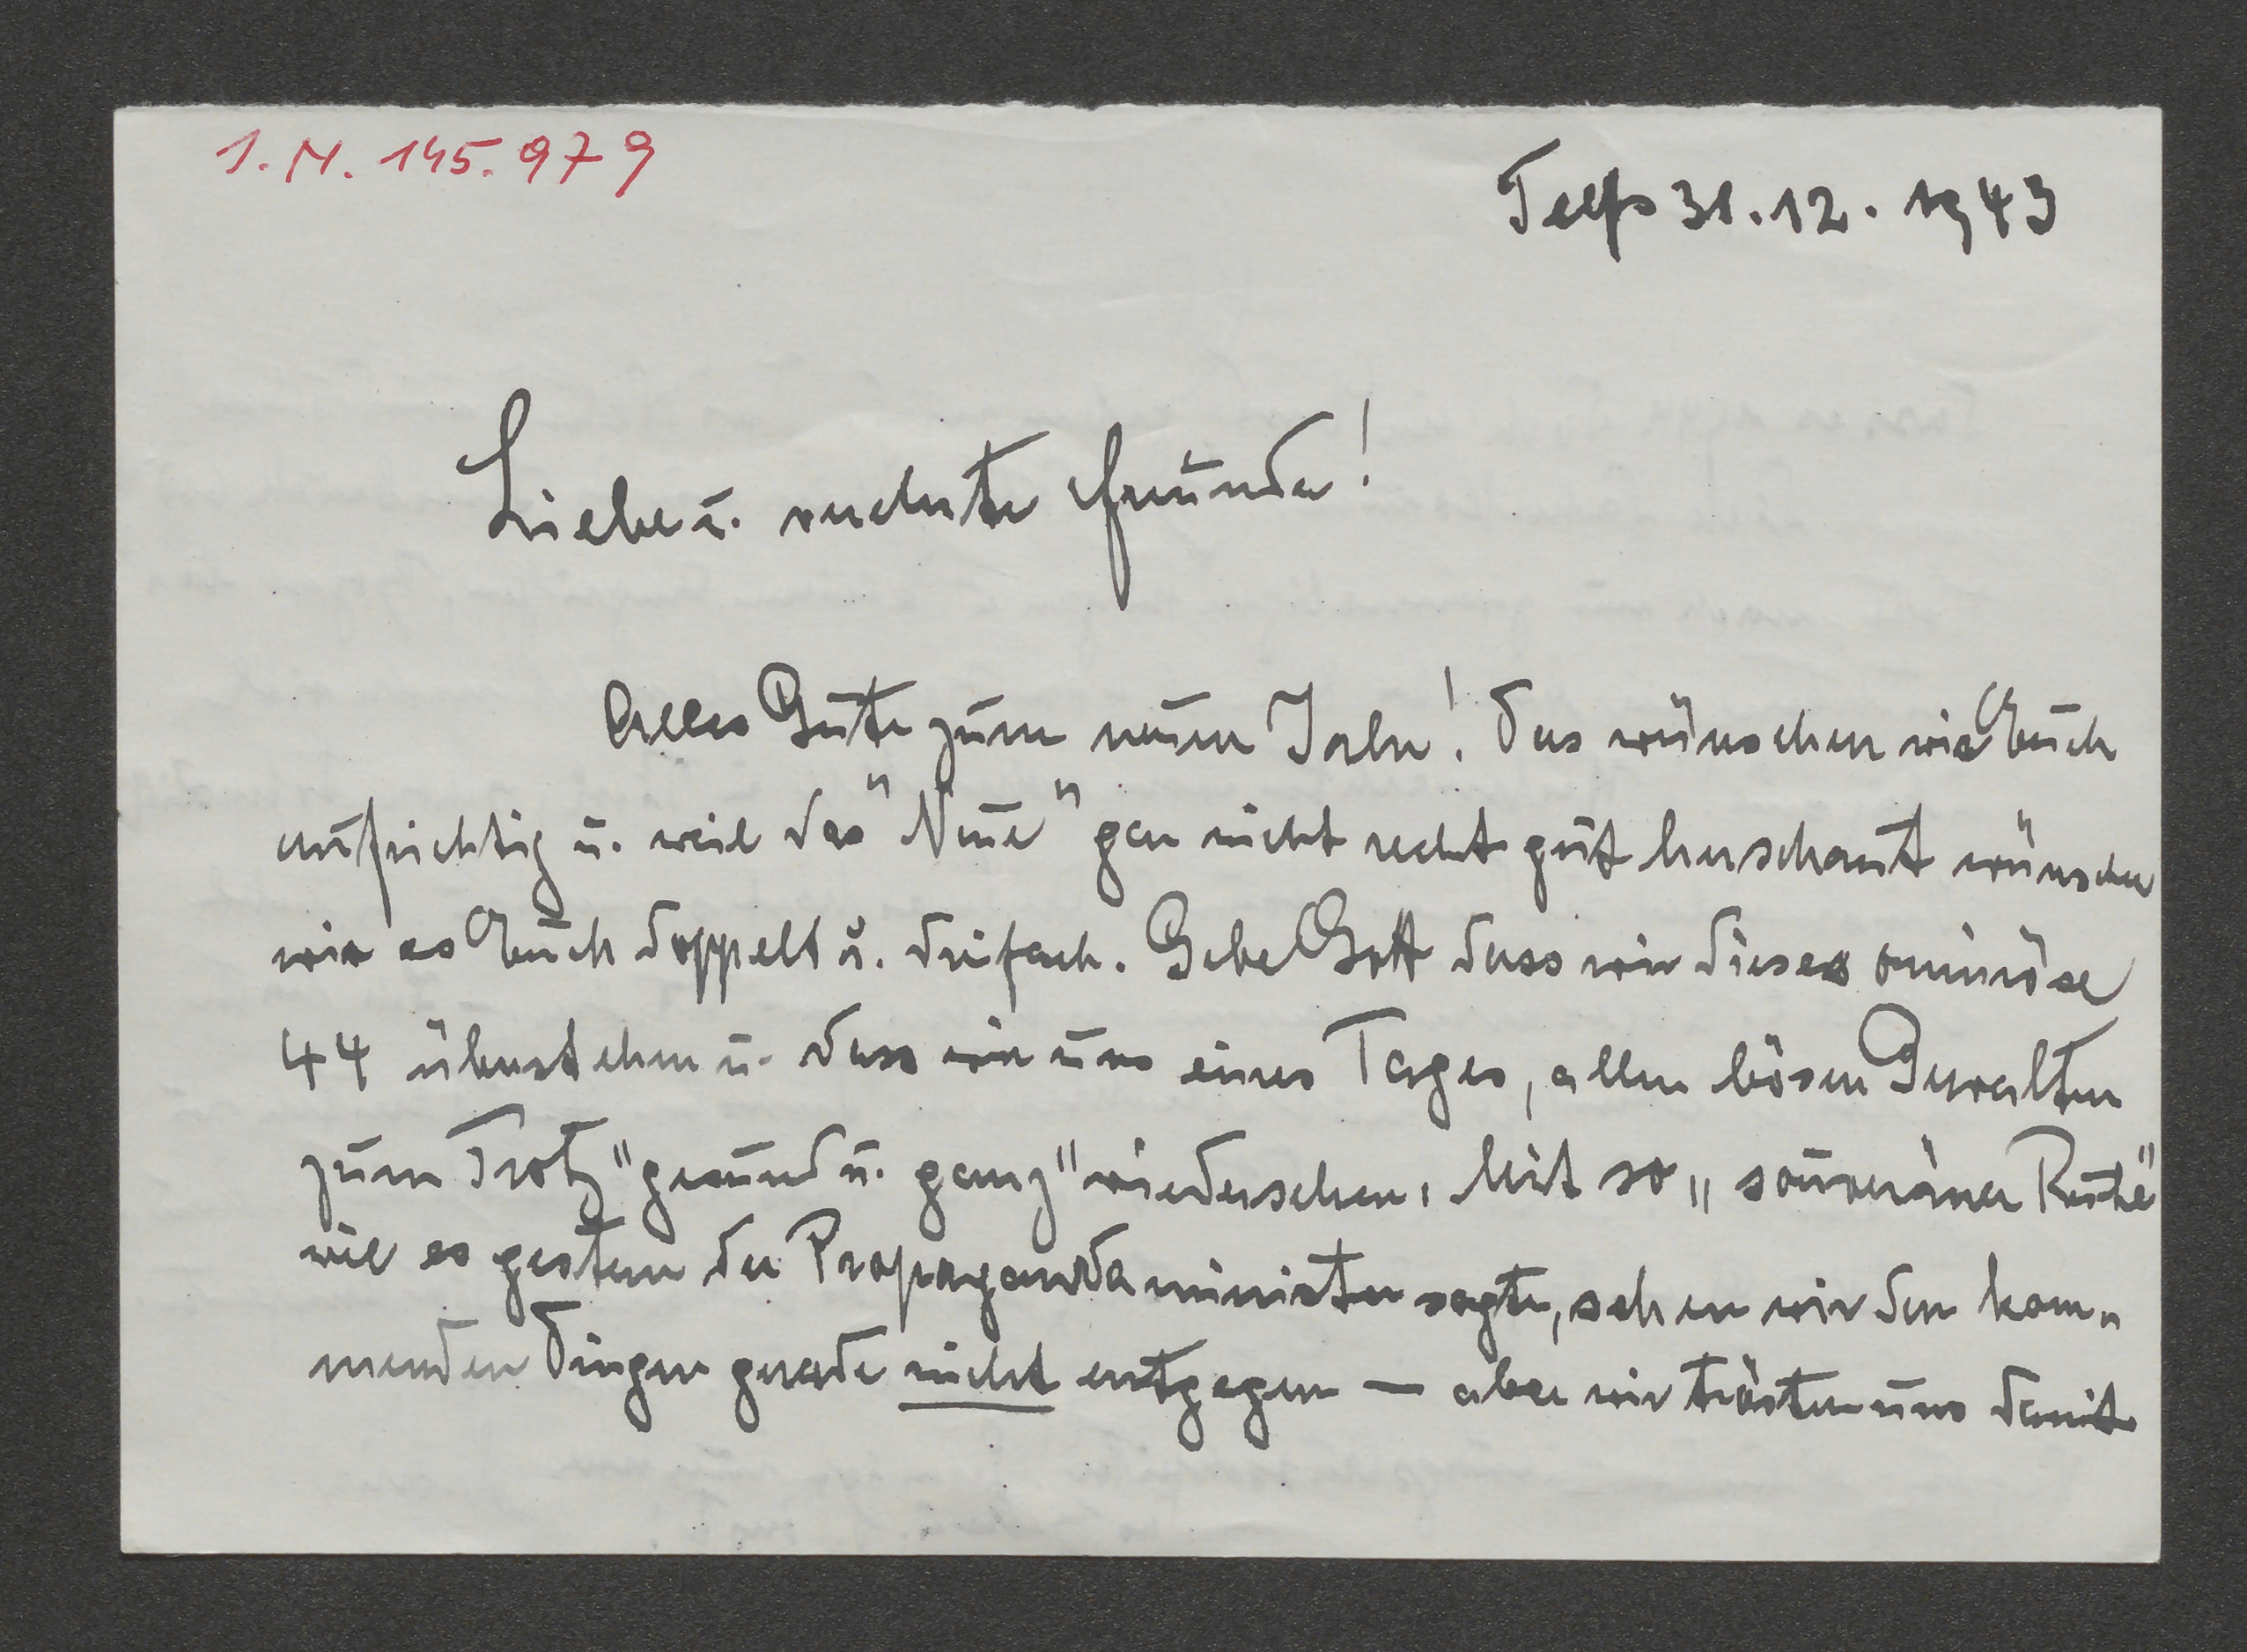 I.N. 145.979
Telfs 31.12.1943
Liebe u. verehrte Freunde!
Alles Gute zum neuen Jahr! Das wünschen wir Euch
aufrichtig u. weil das "Neue" gar nicht recht gut herschaut wünschen
wir es Euch doppelt u. dreifach. Gebe Gott dass wir dieses ominöse
44 überstehen u. dass wir uns eines Tages, allen bösen Gewalten
zum Trotz "gesund u. ganz" wiedersehen. Mit so „souveräner Ruhe"
wie es gestern der Propagandaminister sagte, sehen wir den kom-
menden Dingen gerade nicht entgegen — aber wir trösten uns damit